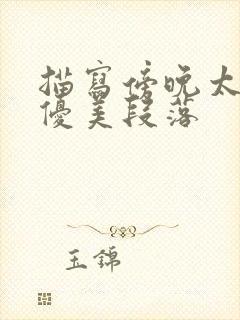 描寫傍晚太
優美段落
玉錦